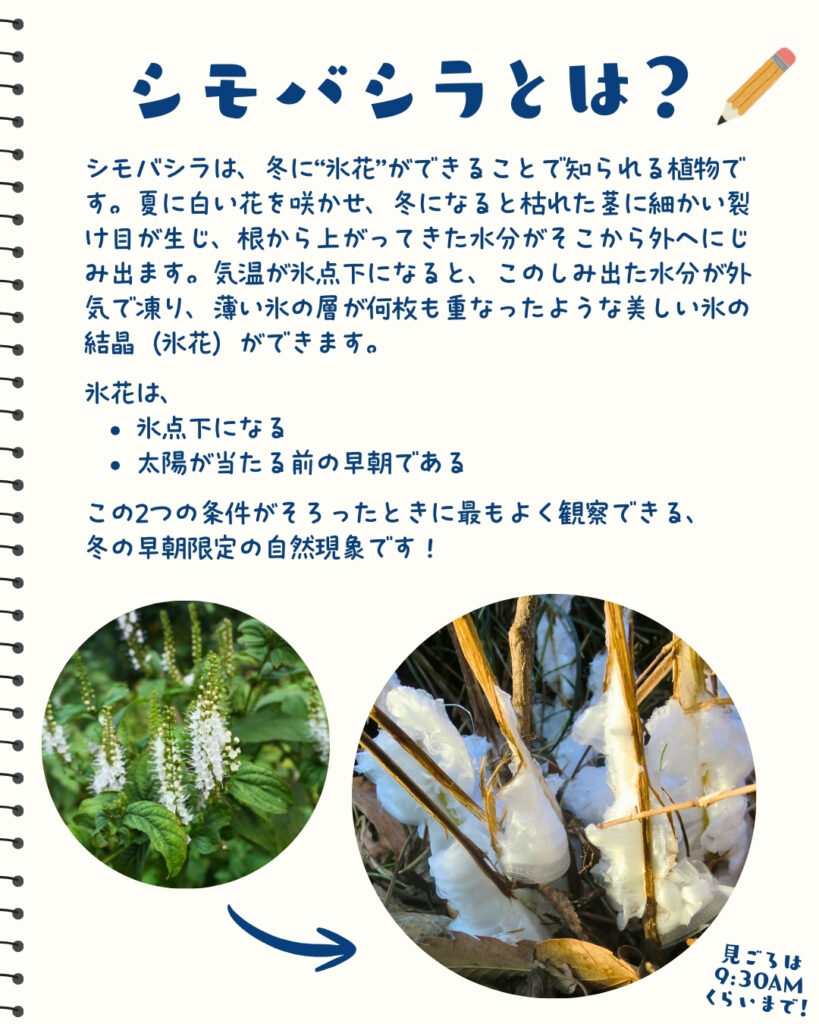 シモバシラとは？
シモバシラは、冬に“氷花”ができることで知られる植物で
す。夏に白い花を咲かせ、冬になると枯れた茎に細かい裂
け目が生じ、根から上がってきた水分がそこから外へにじ
み出ます。気温が氷点下になると、このしみ出た水分が外
気で凍り、薄い氷の層が何枚も重なったような美しい氷の
結晶（氷花）ができます。
氷花は、
• 氷点下になる
• 太陽が当たる前の早朝である
この2つの条件がそろったときに最もよく観察できる、
冬の早朝限定の自然現象です！
見ごろは
9:30AM
くらいまで！